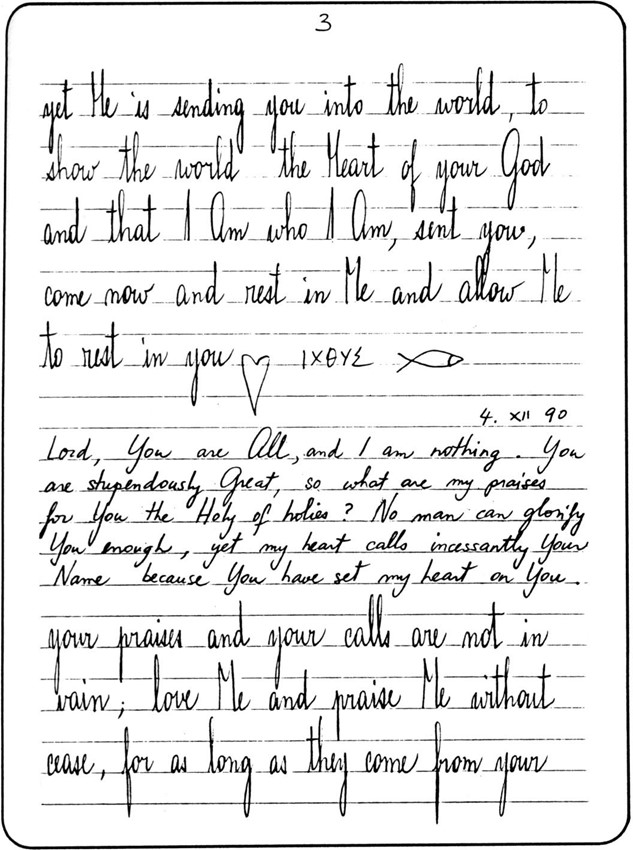 3
yet Me is sending you into the world, to
show the world the Heart of your God
and that I Am who I Am, sent you,
come now and rest in Me and allow Me
to rest in you ΙΧΘΥΣ
4. XII 90
Lord, You are All, and I am nothing. You
are stupendously Great, so, what are my praises
for You the Holy of holies? No man can glorify
You enough, yet my heart calls incessantly Your
Name because You have set my heart on You.
your praises and your calls are not in
vain; love Me and praise Me without
cease, for as long as they come from your